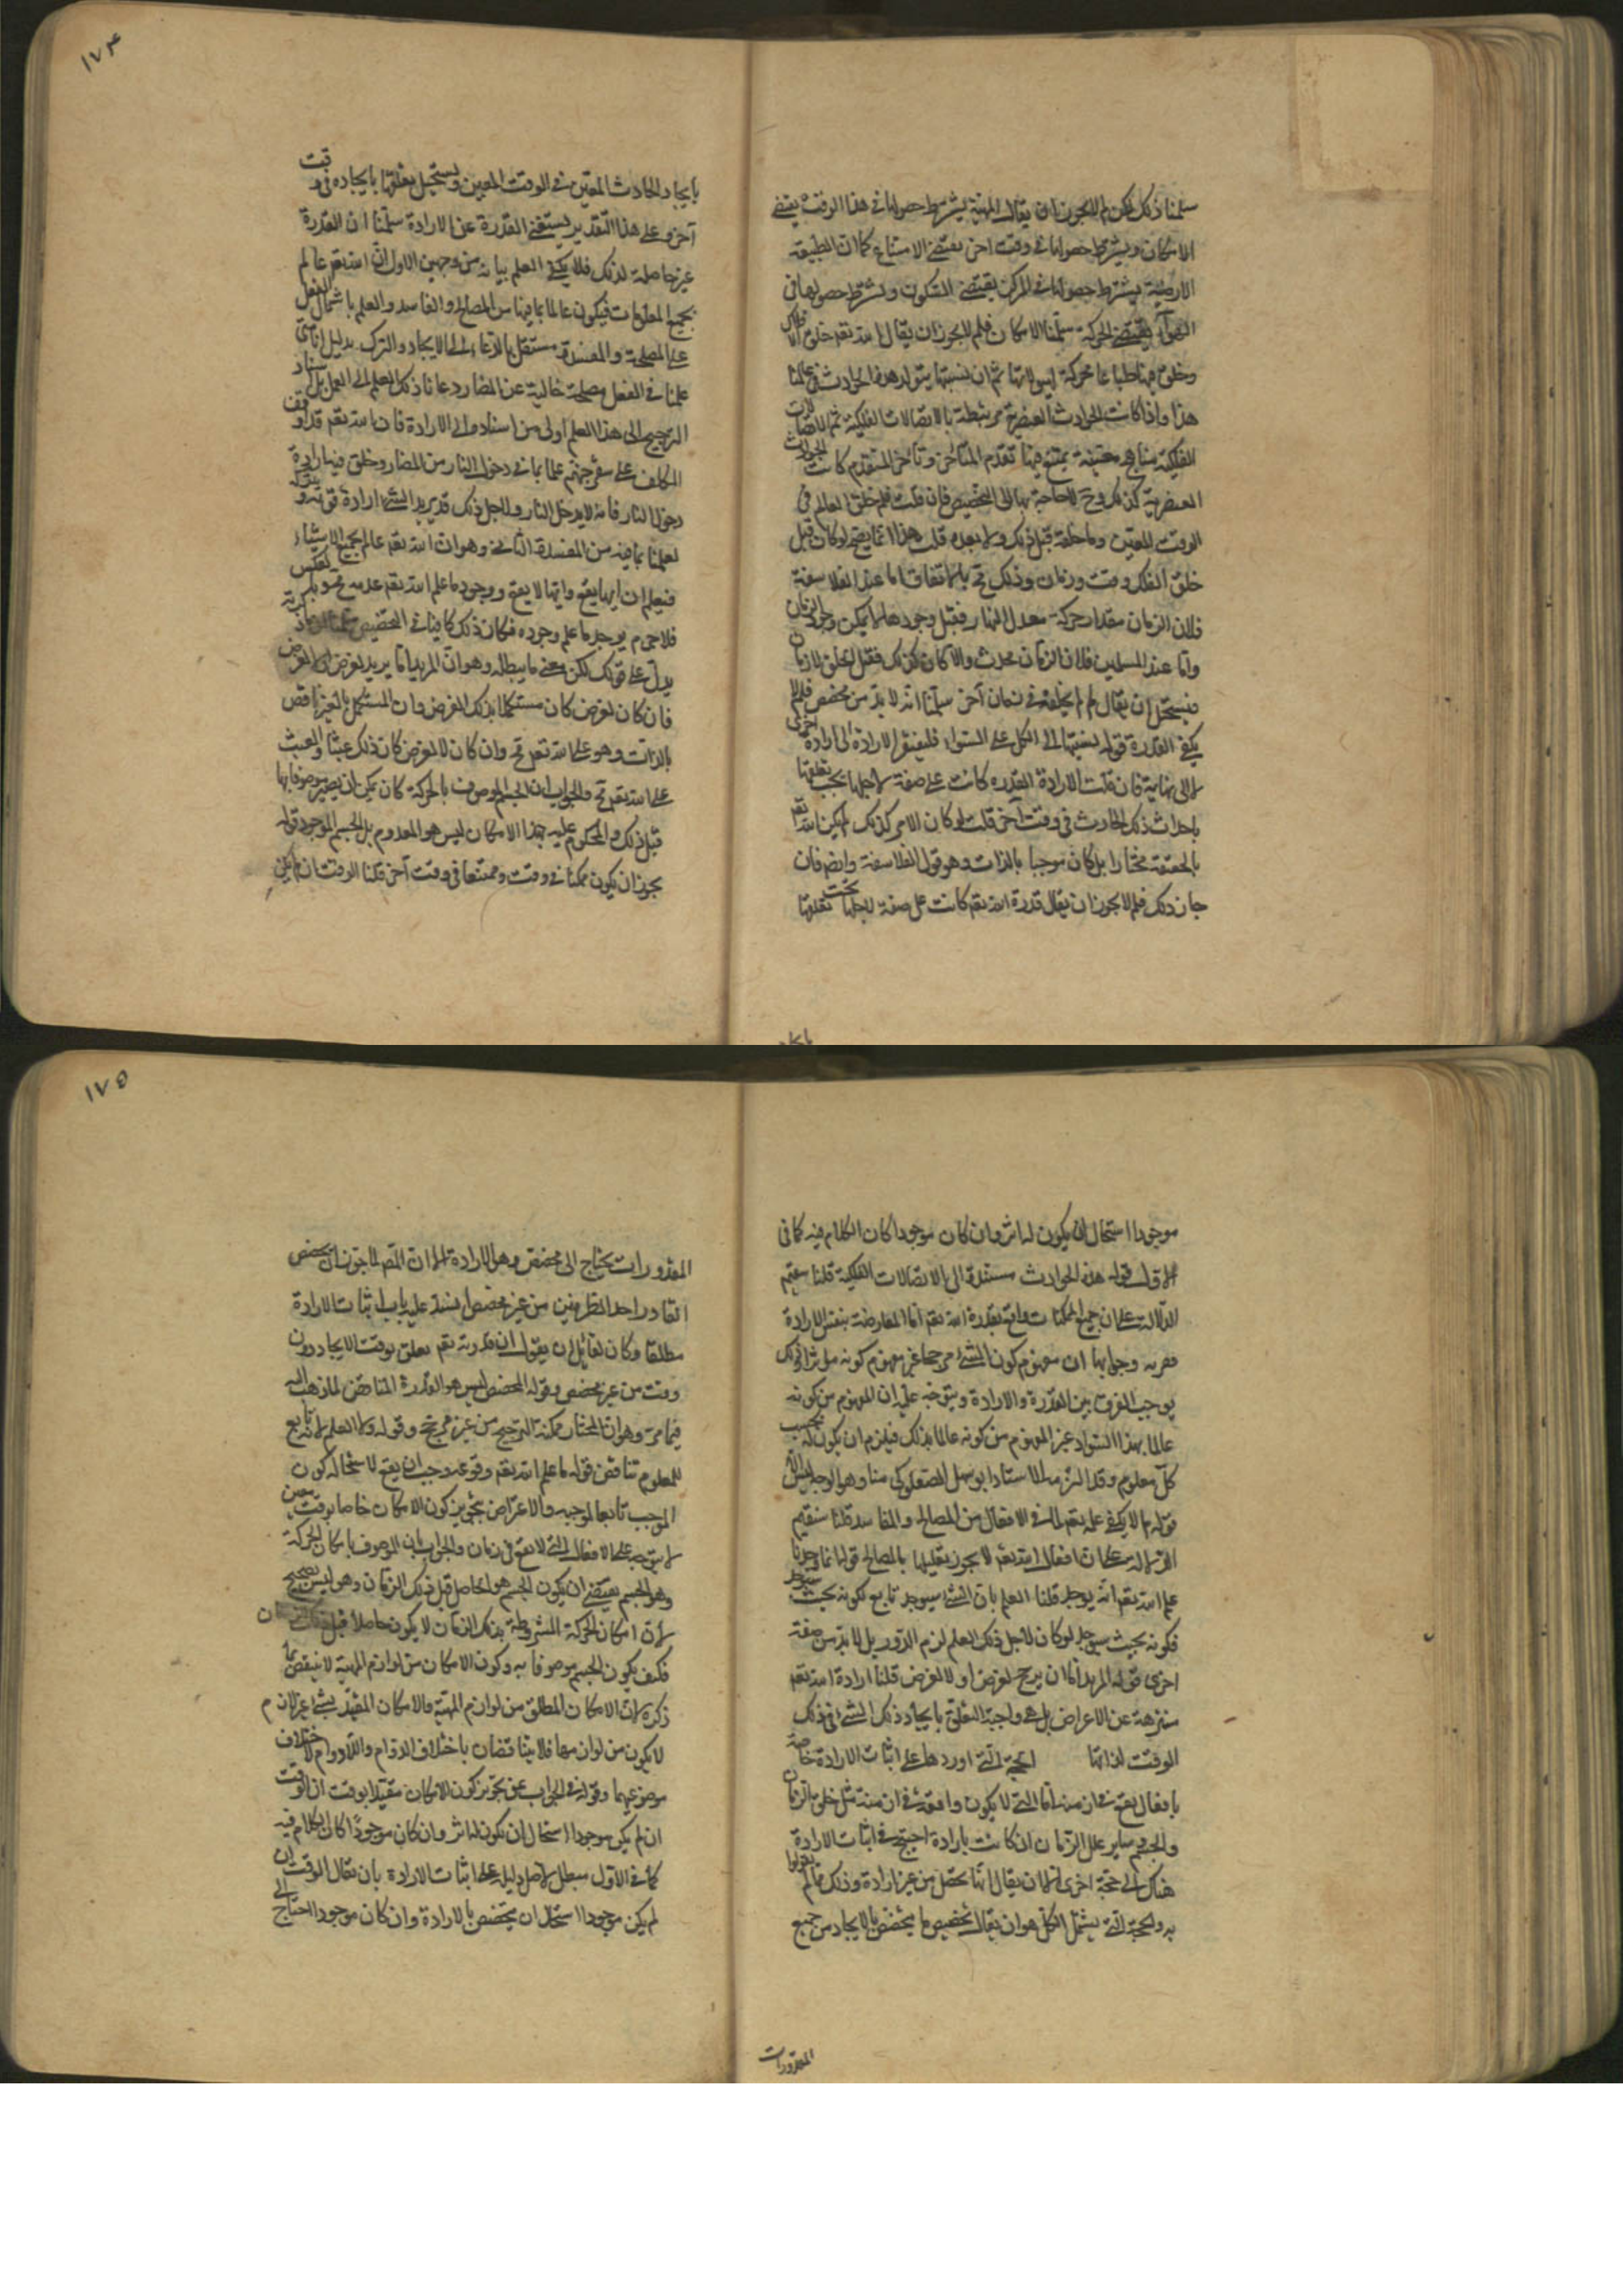 سلمنا ذلك لكن لم لا يجوز ان يقال المهية بشرط حصولها في هذا الوقت يقتضي
الامكان وبشرط حصولها في وقت اخر يقتضي الامتناع كما ان الطبيعة
الارضية بشرط حصولها في المركز يقتضي السكون وبشرط حصولها في
الهواء يقتضي الحركة سلمنا الامكان فلم لا يجوز ان يقال الله تعم خلق الافلاك
وخلق فيها طباعا محركة لها لذاتها ثم ان بسببها يتولد هذه الحوادث في عالمنا
هذا واذا كانت الحوادث العنصرية مرتبطة بالاتصالات الفلكية ثم للاتصالات
الفلكية مناهج معينة يمتنع فيها تقدم المتاخر وتاخر المتقدم كانت الحوادث
العنصرية كذلك وح لا حاجة بها الى المخصص فان قلت فلم خلق العالم في
الوقت المعين وما خلقه قبل ذلك ولا بعده قلت هذا انما يصح لو كان قبل
خلق الفلك وقت وزمان وذلك مح بالاتفاق اما عند الفلاسفة
فلان الزمان مقدار حركة معدل النهار فقبل وجودها لا يمكن وجود الزمان
واما عند المسلمين فلان الزمان محدث والا كان كذلك فقبل الخلق لا زمان
فيستحيل ان يقال لم لم يخلقه في زمان آخر سلمنا انه لا بد من مخصص فلم لا
يكفي القدرة قوله نسبتها الى الكل على السواء فليفتقر الارادة الى ارادة اخرى
لا الى نهاية فان قلت الارادة القديمة كانت على صفة لاجلها يجب تعلقها
باحداث ذلك الحادث في وقت آخر قلت لو كان الامر كذلك لم يكن الله تعم
بالحقيقة مختارا بل كان موجبا بالذات وهو قول الفلاسفة وايضا فان
جاز ذلك فلم لا يجوز ان يقال قدرة الله تعم كانت على صفة لاجلها يجب تعلقها
بايجاد
١٧۴
بايجاد الحادث المعين في الوقت المعين ويستحيل تعلقها بايجاده في وقت
آخر وعلى هذا التقدير يستغني القدرة عن الارادة سلمنا ان القدرة
غير حاصلة لذلك فلم لا يكفي العلم بيانه من وجهين الاول انه تعم عالم
بجميع المعلومات فيكون عالما بما فيها من المصالح والمفاسد والعلم باشتمال الفعل
على المصلحة والمفسدة مستقل بالدعاء الى الايجاد والترك بدليل انا متى
علمنا في الفعل مصلحة خالية عن المضار دعانا ذلك العلم الى العمل بل اسناد
الترجيح الى هذا العلم اولى من اسناده الى الارادة فان الله تعم قد اوقف
المكلف على شفير جهنم عالما بما في دخول النار من المضار وخلق فيه ارادة
دخول النار فانه لا يدخل النار ولاجل ذلك قد يريد الشيء ارادة قوية ويتركه
لعلمنا بما فيه من المفسدة الثاني وهو ان الله تعم عالم بجميع الاشياء
فيعلم ان ايها يقع وايها لا يقع ووجود ما علم الله تعم عدمه مح وبالعكس
فلا جرم يوجد ما علم وجوده فكان ذلك كافيا في التخصيص
يدل على قولك لكن معنا ما يبطله وهو ان المريد اما يريد لغرض او لا لغرض
فان كان لغرض كان مستكملا بذلك الغرض وان المستكمل بالغير ناقص
بالذات وهو على الله تعم مح وان كان لا لغرض كان ذلك عبثا والعبث
على الله تعم مح والجواب ان الجسم الموصوف بالحركة كان يمكن ان يصير موصوفا بها
قبل ذلك والمحكوم عليه بهذا الامكان ليس هو المعدوم بل الجسم الموجود قوله
يجوز ان يكون ممكنا في وقت وممتنعا في وقت آخر قلنا الوقت ان لم يكن
موجودا استحال ان يكون له اثر وان كان موجودا كان الكلام فيه كما في
الاول قوله هذه الحوادث مستندة الى الاتصالات الفلكية قلنا سنقيم
الدلالة على ان جميع الممكنات واقع بقدرة الله تعم اما المعارضة بنفس الارادة
وجوابها ان مفهوم كون الشيء مرجحا غير مفهوم كونه مؤثرا في ذلك
يوجب الفرق بين القدرة والارادة ويتوجه عليه ان المفهوم من كونه
عالما بهذا السواد غير المفهوم من كونه عالما بذلك فيلزم ان يكون له بحسب
كل معلوم وقد التزمه الاستاد ابو سهل الصعلوكي منا وهو الوجه
قوله لم لا يكفي علمه تعم بما في الافعال من المصالح والمفاسد قلنا سنقيم
الدلالة على ان افعال الله تعم لا يجوز تعليلها بالمصالح قوله انما وجد ما
علم الله تعم انه يوجد قلنا العلم بان الشيء سيوجد تابع لكونه بحيث سيوجد
فكونه بحيث سيوجد لو كان لاجل ذلك العلم لزم الدور بل لا بد من صفة
اخرى قوله المريد اما ان يرجح لغرض او لا لغرض قلنا ارادة الله تعم
منزهة عن الاغراض بل هي واجبة التعلق بايجاد ذلك الشيء في ذلك
الوقت لذاتها الحجة التي اوردها على اثبات الارادة خاصة
بافعال يقع في ازمنة اما التي لا يكون واقعة في ازمنة مثل خلق الزمان
والجسم سائر علل الزمان ان كانت بارادة احتج في اثبات الارادة
هناك الى حجة اخرى اللهم الا ان يقال انها يحصل من غير ارادة وذلك مما لم يقولوا
به والحجة التي يشمل الكل هو ان يقال تخصيص ما يخصص بالايجاد من جميع
المقدورات
١٧۵
المقدورات يحتاج الى مخصص وهو الارادة الا ان المص لما جوز ان يخصص
القادر احد الطرفين من غير مخصص انسد عليه باب اثبات الارادة
مطلقا وكان لقائل ان يقول ان قدرته تعم يتعلق بوقت الايجاد دون
وقت من غير مخصص وقوله المخصص ليس هو القدرة المناقض لما ذهب اليه
فيما مر وهو ان المختار يمكنه الترجيح من غير مرجح وقوله ولا العلم لانه تابع
للمعلوم تناقض قوله ما علم الله تعم وقوعه وجب ان يقع لاستحالة كون
الموجب تابعا لموجبه والاعتراض بتجويز كون الامكان خاصا بوقت معين
لا يتوجه على الافعال التي لا تقع في زمان والجواب بان الموصوف بامكان الحركة
وهو الجسم يقتضي ان يكون الجسم هو الحاصل قبل ذلك الزمان وهو ليس بصحيح
لان امكان الحركة المشروطة بذلك الزمان لا يكون حاصلا قبل ذلك الزمان
فكيف يكون الجسم موصوفا به وكون الامكان من لوازم المهية لا ينقض ما
ذكره لان الامكان المطلق من لوازم المهية والامكان المقيد بشيء غير لازم
لا يكون من لوازمها فلا يتناقضان باختلاف الدوام واللادوام لاختلاف
موضوعيهما وقوله في الجواب عن تجويز كون الامكان مقيدا بوقت ان الوقت
ان لم يكن موجودا استحال ان يكون له اثر وان كان موجودا كان الكلام فيه
كما في الاول مبطل لاصل دليله على اثبات الارادة بان يقال الوقت ان
لم يكن موجودا استحال ان يخصص بالارادة وان كان موجودا احتاج الى